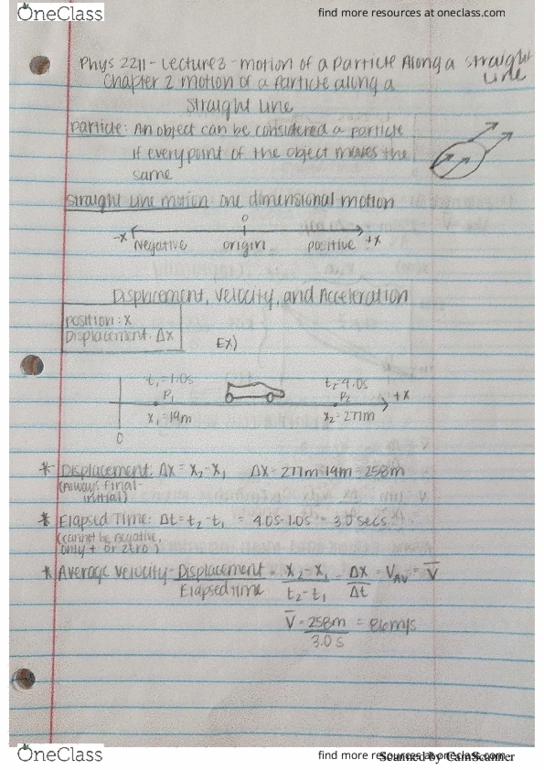 OneClass
find more resources at oneclass.com
Phys 2211 - Lecture 3 - motion of a Particle Along a straight Line
Chapter 2 motion of a Particle along a
straight Line
particle: An object can be considered a particle
if every point of the object moves the
same
straight line motion: one dimensional motion
0
-x negative origin positive +x
Displacement, velocity, and Acceleration
position: x
Displacement: Δx
Ex)
t₁=1.0s t₂=4.0s
P₁ P₂ +x
x₁=19m x₂=277m
0
* Displacement: Δx = x₂-x₁ Δx = 277m-19m = 258m
(Always final-
initial)
* Elapsed Time: Δt = t₂-t₁ = 4.0s-1.0s = 3.0 secs
(cannot be negative,
only + or zero)
* Average velocity = Displacement = x₂-x₁ = Δx = V_AV = V̄
Elapsed time t₂-t₁ Δt
V̄ = 258m = 86m/s
3.0 s
OneClass
find more resources at oneclass.com
Scanned by CamScanner